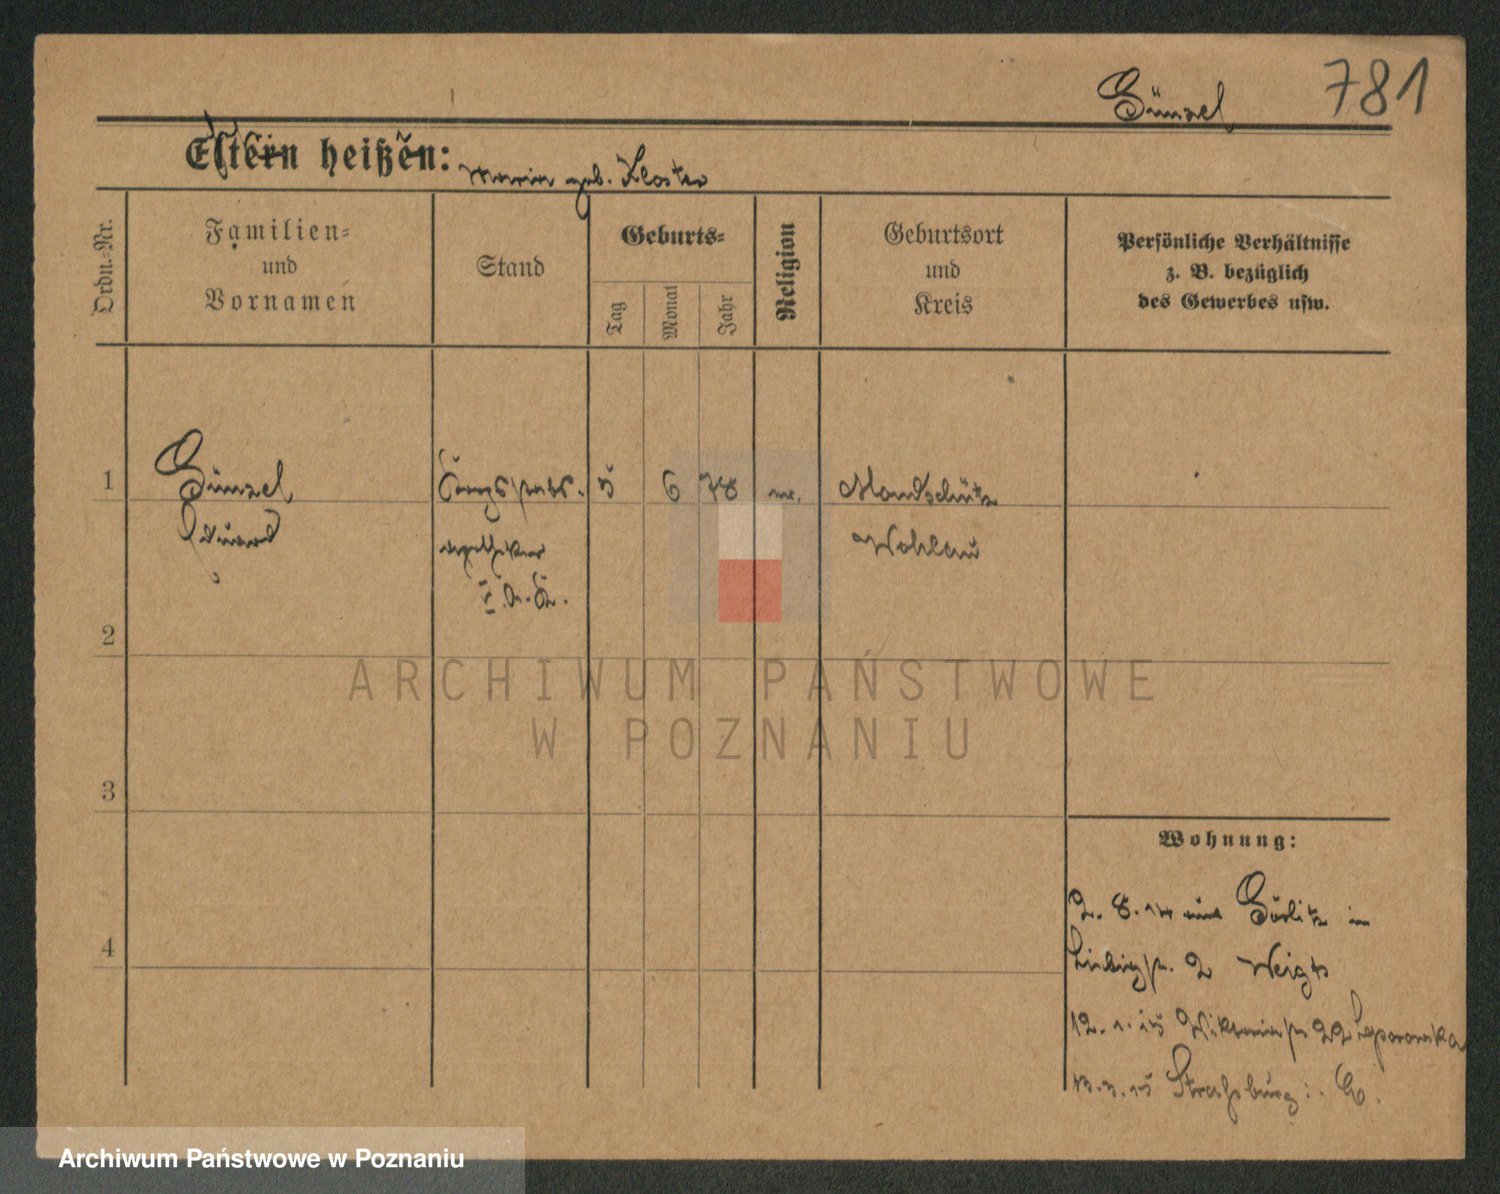 Günzel 781
Eltern heißen: Maria geb. Kloster
Ordn.-Nr.
Familien-
und
Vornamen
Stand
Geburts-
Tag
Monat
Jahr
Religion
Geburtsort
und
Kreis
Persönliche Verhältnisse
z. B. bezüglich
des Gewerbes usw.
1
Günzel
Eduard
apotheker
5 6 78
Mondschütz
Wohlau
2
3
4
Wohnung:
2. 8. 14 aus Görlitz in
Liebigstr. 2 Weigt
12. 1. 15 Viktoriastr 22
Straßburg i. E.
ARCHIWUM PAŃSTWOWE
W POZNANIU
Archiwum Państwowe w Poznaniu